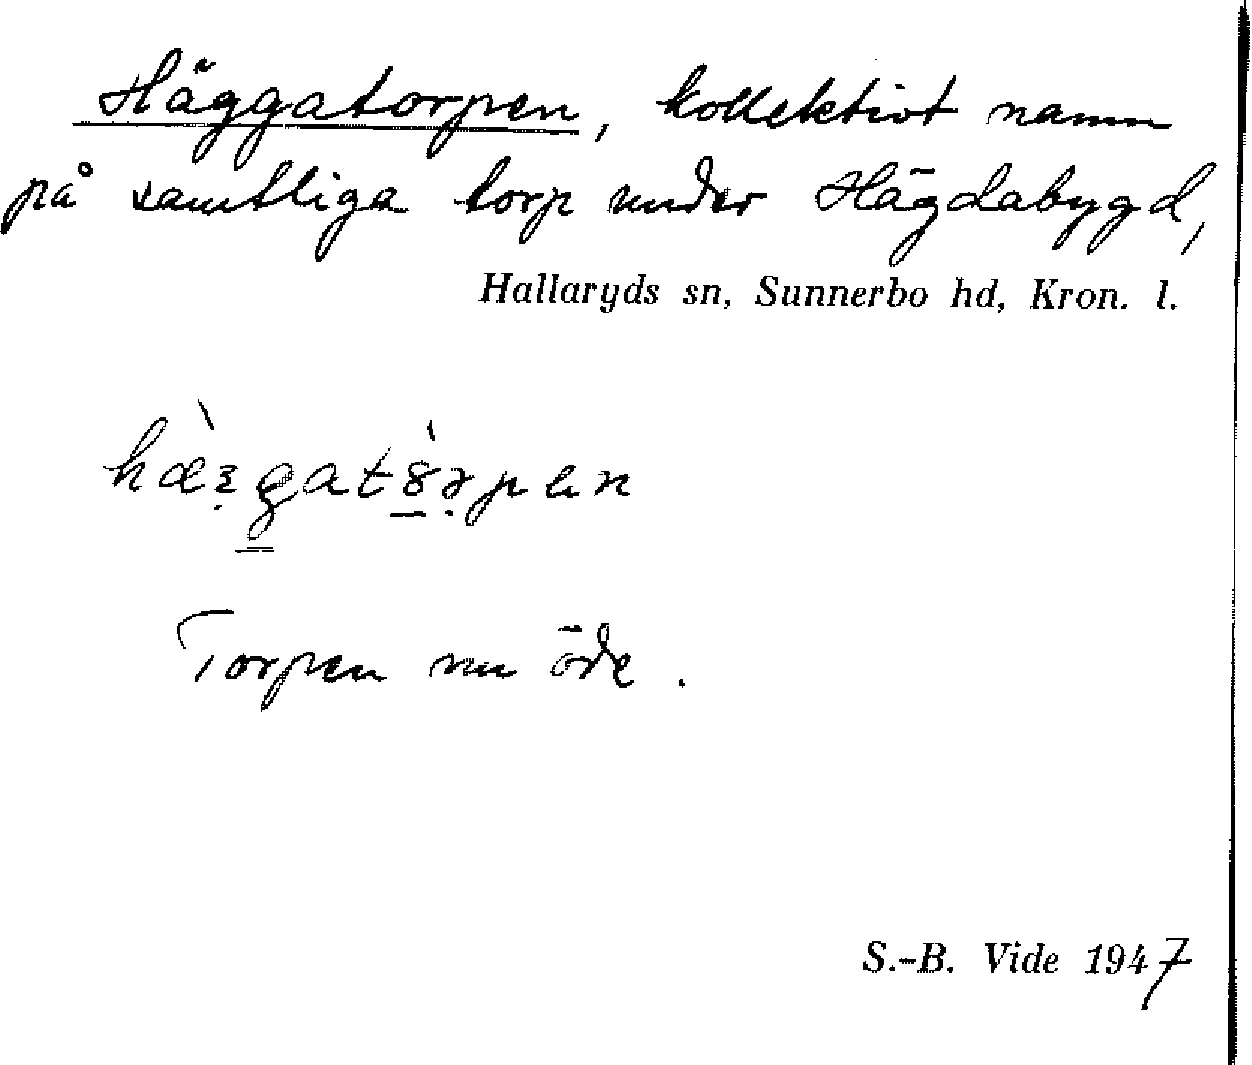 Häggatorpen, kollektivt namn
på samtliga torp under Hägdabygd,
Hallaryds sn, Sunnerbo hd, Kron. l.
Torpen nu öde.
S.-B. Vide 1947